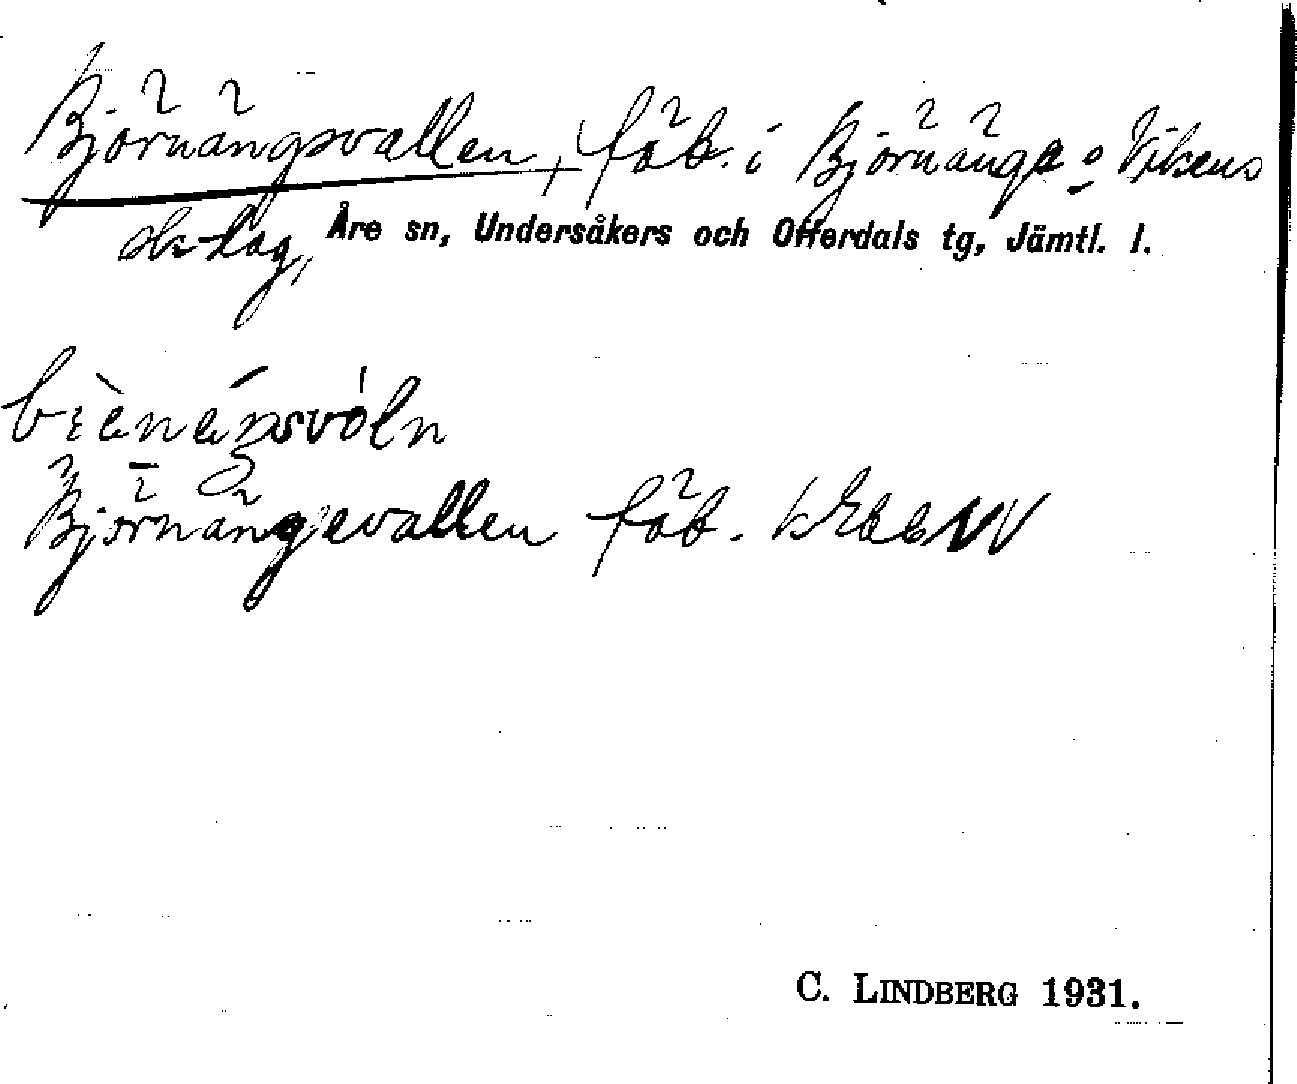 Björnängsvallen, fäb. i Björnänge o Vikens
sk-lag, Åre sn, Undersåkers och Offerdals tg, Jämtl. l.
Björnängevallen fäb.
C. LINDBERG 1931.